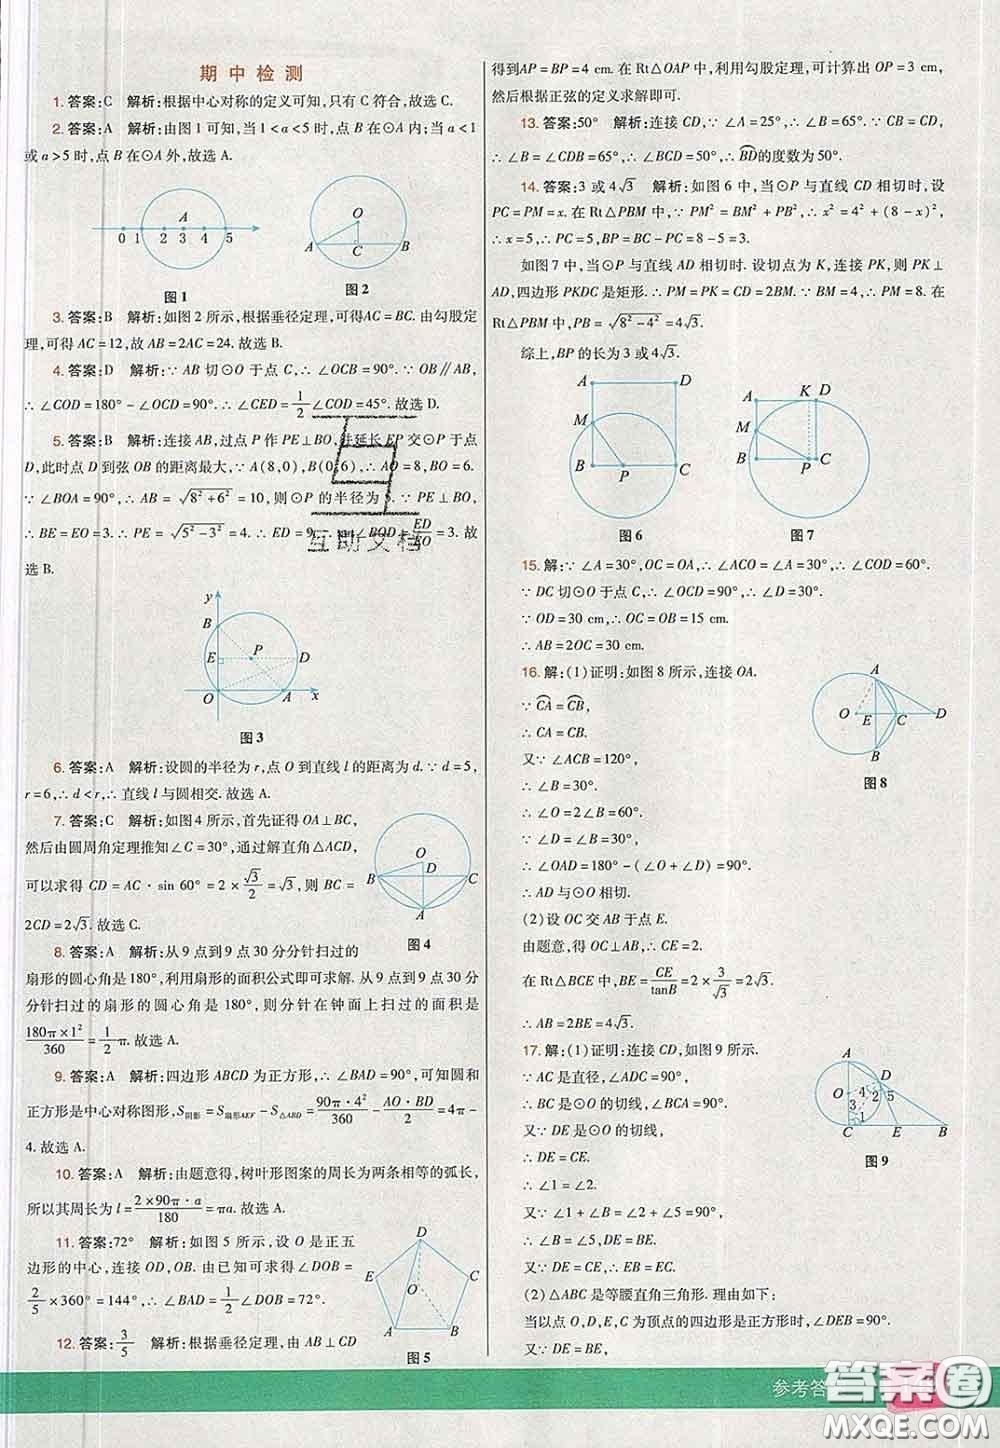 期中检测
1. 答案:C 解析:根据中心对称的定义可知,只有 C 符合,故选 C.
2. 答案:A 解析:由图 1 可知,当 1<a<5 时,点 B 在⊙A 内;当 a<1
或 a>5 时,点 B 在⊙A 外,故选 A.
A
0 1 2 3 4 5
图 1
O
A C B
图 2
3. 答案:B 解析:如图 2 所示,根据垂径定理,可得AC=BC. 由勾股定
理,可得 AC=12,故 AB=2AC=24. 故选 B.
4. 答案:D 解析:∵ AB 切⊙O 于点 C,∴ ∠OCB=90°. ∵ OB∥AF,
∴ ∠COD=180°-∠OCD=90°. ∴ ∠CED=1/2∠COD=45°. 故选 D.
5. 答案:B 解析:连接 AB,过点 P 作 PE⊥BO,并延长 EP 交⊙P 于点
D,此时点 D 到弦 OB 的距离最大,∵ A(8,0),B(0,6),∴ AO=8,BO=6.
∵ ∠BOA=90°,∴ AB=√(8²+6²)=10,则⊙P 的半径为 5. ∵ PE⊥BO,
∴ BE=EO=3. ∴ PE=√(5²-3²)=4. ∴ ED=9. ∴ tan∠BOD=ED/EO=3. 故
选 B.
互助文档
y
B
E P D
O A x
图 3
6. 答案:A 解析:设圆的半径为 r,点 O 到直线 l 的距离为 d. ∵ d=5,
r=6,∴ d<r,∴ 直线 l 与圆相交. 故选 A.
7. 答案:C 解析:如图 4 所示,首先证得 OA⊥BC,
然后由圆周角定理推知∠C=30°,通过解直角△ACD,
可以求得 CD=AC·sin 60°=2×√3/2=√3,则 BC=
2CD=2√3. 故选 C.
O
D
B C
A
图 4
8. 答案:A 解析:从 9 点到 9 点 30 分分针扫过的
扇形的圆心角是 180°,利用扇形的面积公式即可求解. 从 9 点到 9 点 30 分
分针扫过的扇形的圆心角是 180°,则分针在钟面上扫过的面积是
180π×1²/360=1/2π. 故选 A.
9. 答案:A 解析:四边形 ABCD 为正方形,∴ ∠BAD=90°,可知圆和
正方形是中心对称图形,S阴影=S扇形AEF-S△ABD=90π·4²/360-AO·BD/2=4π-
4. 故选 A.
10. 答案:A 解析:由题意可得,树叶形图案的周长为两条相等的弧长,
所以其周长为 l=2×90π·a/180=πa. 故选 A.
11. 答案:72° 解析:如图 5 所示,设 O 是正五
边形的中心,连接 OD,OB. 由已知可求得∠DOB=
2/5×360°=144°,∴ ∠BAD=1/2∠DOB=72°.
12. 答案:3/5 解析:根据垂径定理,由 AB⊥CD
D
E C
O
A B
图 5
得到AP=BP=4 cm. 在 Rt△OAP 中,利用勾股定理,可计算出 OP=3 cm,
然后根据正弦的定义求解即可.
13. 答案:50° 解析:连接 CD,∵ ∠A=25°,∴ ∠B=65°. ∵ CB=CD,
∴ ∠B=∠CDB=65°,∴ ∠BCD=50°,∴ BD⌒的度数为 50°.
14. 答案:3 或 4√3 解析:如图 6 中,当⊙P 与直线 CD 相切时,设
PC=PM=x. 在 Rt△PBM 中,∵ PM²=BM²+PB²,∴ x²=4²+(8-x)²,
∴ x=5,∴ PC=5,BP=BC-PC=8-5=3.
如图 7 中,当⊙P 与直线 AD 相切时. 设切点为 K,连接 PK,则 PK⊥
AD,四边形 PKDC 是矩形. ∴ PM=PK=CD=2BM. ∵ BM=4,∴ PM=8. 在
Rt△PBM 中,PB=√(8²-4²)=4√3.
综上,BP 的长为 3 或 4√3.
A D
M
B P C
图 6
A K D
M
B P C
图 7
15. 解:∵ ∠A=30°,OC=OA,∴ ∠ACO=∠A=30°,∴ ∠COD=60°.
∵ DC 切⊙O 于点 C,∴ ∠OCD=90°,∴ ∠D=30°.
∵ OD=30 cm,∴ OC=OB=15 cm.
∴ AB=2OC=30 cm.
16. 解:(1)证明:如图 8 所示,连接 OA.
∵ CA⌒=CB⌒,
∴ CA=CB.
又∵ ∠ACB=120°,
∴ ∠B=30°.
∴ ∠O=2∠B=60°.
∵ ∠D=∠B=30°,
∴ ∠OAD=180°-(∠O+∠D)=90°.
∴ AD 与⊙O 相切.
(2)设 OC 交 AB 于点 E.
由题意,得 OC⊥AB,∴ CE=2.
在 Rt△BCE 中,BE=CE/tanB=2×3/√3=2√3.
∴ AB=2BE=4√3.
A
O E C D
B
图 8
17. 解:(1)证明:连接 CD,如图 9 所示.
∵ AC 是直径,∴ ∠ADC=90°.
∴ BC 是⊙O 的切线,∠BCA=90°.
又∵ DE 是⊙O 的切线,
∴ DE=CE.
∴ ∠1=∠2.
又∵ ∠1+∠B=∠2+∠5=90°,
∴ ∠B=∠5,DE=BE.
又∵ DE=CE,∴ EB=EC.
(2)△ABC 是等腰直角三角形. 理由如下:
当以点 O,D,E,C 为顶点的四边形是正方形时,∠DEB=90°.
又∵ DE=BE,
A
D
O 4 2 5
3 1
C E B
图 9
参考答
答案圈
MXQE.COM